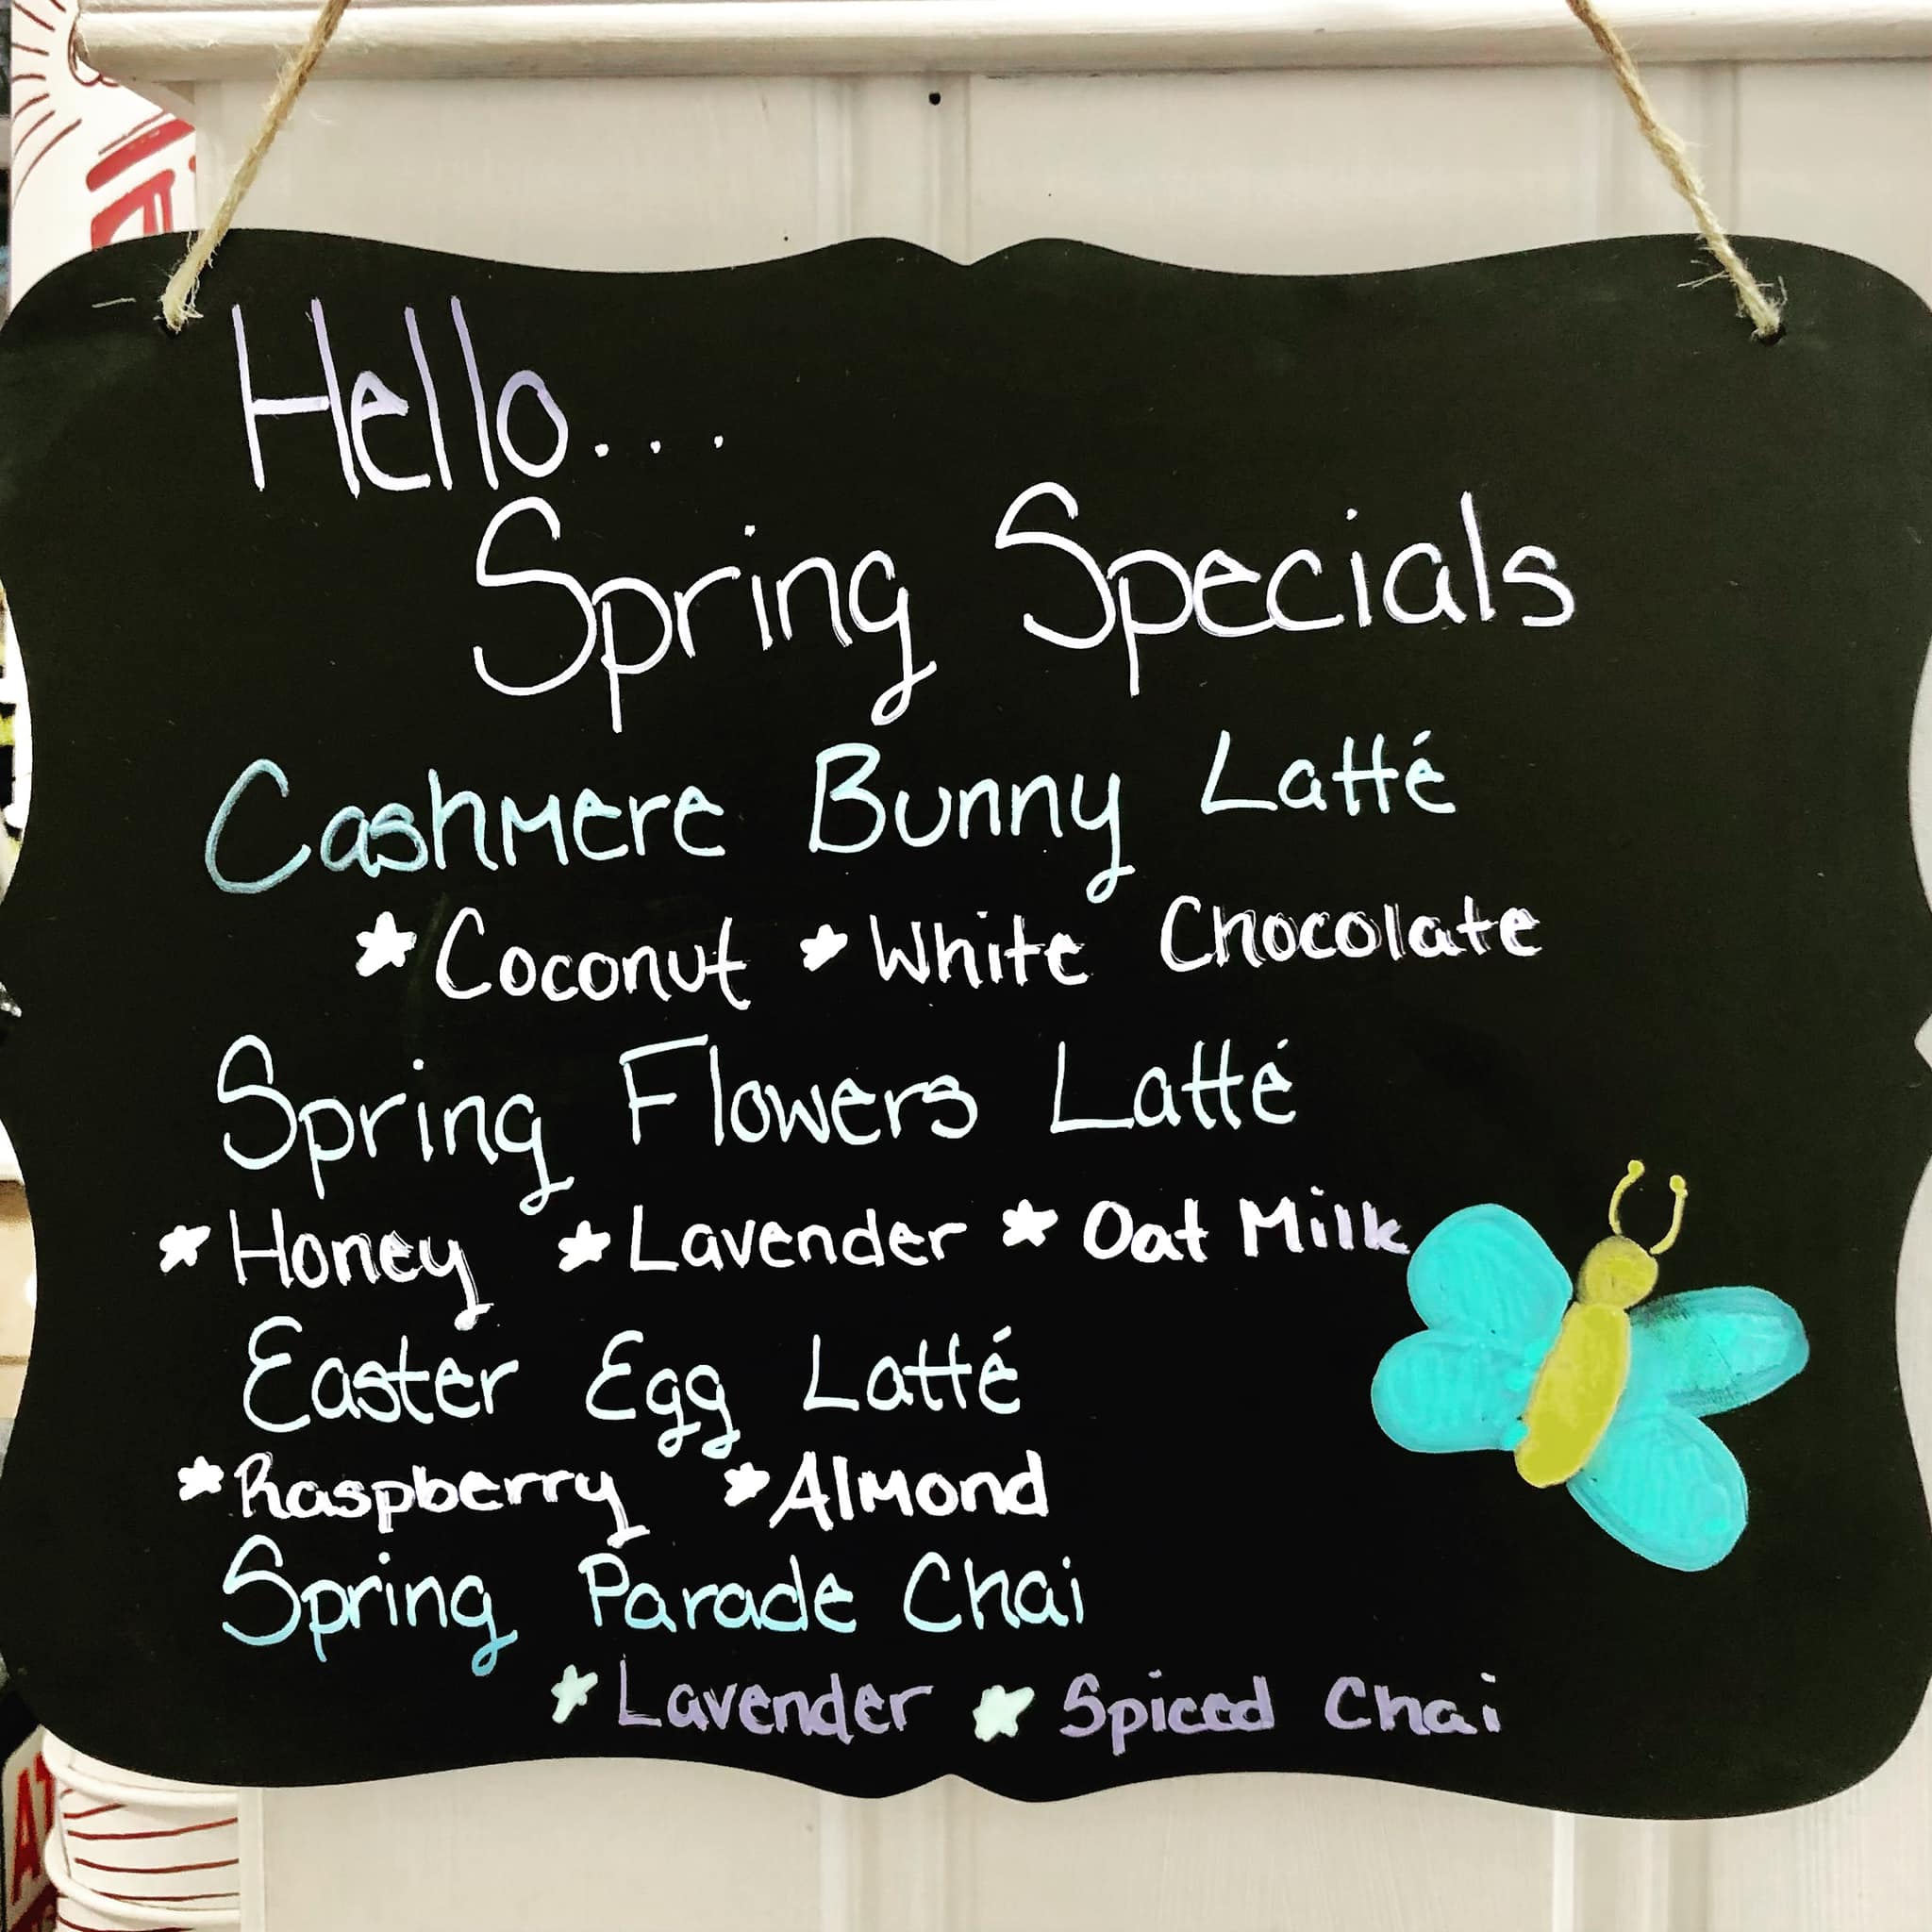 Hello...
Spring Specials
Cashmere Bunny Latté
*Coconut *White Chocolate
Spring Flowers Latté
*Honey *Lavender *Oat Milk
Easter Egg Latté
*Raspberry *Almond
Spring Parade Chai
*Lavender *Spiced Chai